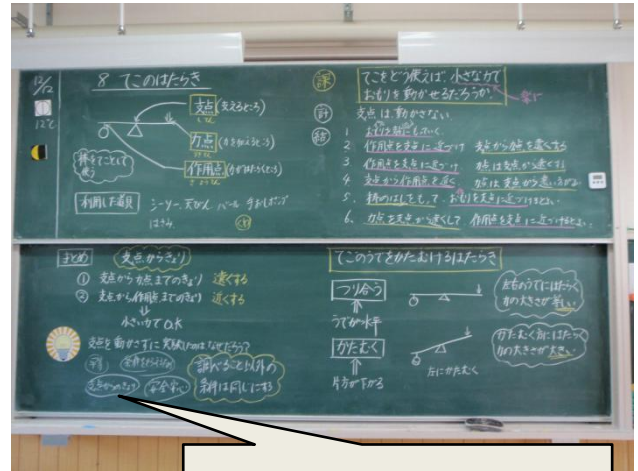 12/12
8 てこのはたらき
支点(支えるところ)
してん
力点(力を加えるところ)
作用点(力がはたらくところ)
さようてん
棒をてことして
使う
利用した道具
シーソー、天びん
はさみ
課
てこをどう使えば、小さな力で
おもりを動かせるだろうか。
計
支点は動かさない
結
1.
2. 作用点を支点に近づけ 支点から力点を遠くする
3. 作用点を支点に近づけ 力点は支点から遠くする
4. 支点から作用点を近く 力点は支点から遠い方がよい
5. おもりを支点に近づけるとよい
6. 力点を支点から遠くして 作用点を支点に近づけるとよい。
まとめ 支点からきょり
① 支点から力点までのきょり 遠くする
② 支点から作用点までのきょり 近くする
小さい力でOK
支点を動かさずに実験したのはなぜだろう?
調べること以外の
条件は同じにする
てこのうでをかたむけるはたらき
つり合う
うでが水平
左右のうでにはたらく
力の大きさが等しい
かたむく
片方が下がる
左にかたむく
かたむく方にはたらく
力の大きさが大きい